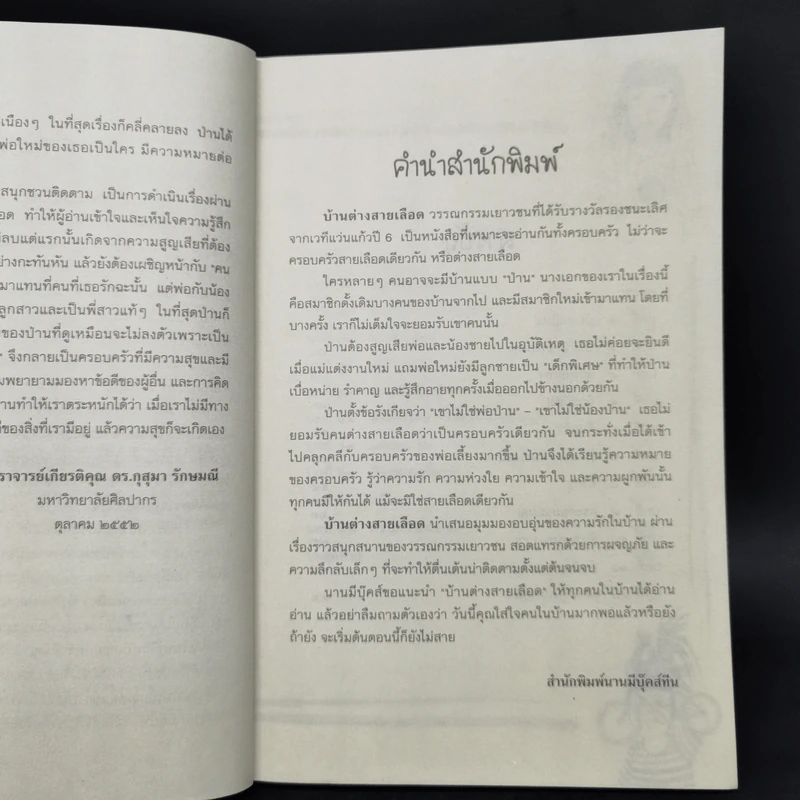 เนืองๆ ในที่สุดเรื่องก็คลี่คลายลง ป่านได้
พ่อใหม่ของเธอเป็นใคร มีความหมายต่อ
สนุกชวนติดตาม เป็นการดำเนินเรื่องผ่าน
ทำให้ผู้อ่านเข้าใจและเห็นใจความรู้สึก
ลบแต่แรกนั้นเกิดจากความสูญเสียที่ต้อง
อย่างกะทันหัน แล้วยังต้องเผชิญหน้ากับ "คน
มาแทนที่คนที่เธอรักฉะนั้น แต่พ่อกับน้อง
ลูกสาวและเป็นพี่สาวแท้ๆ ในที่สุดป่านก็
ของป่านที่ดูเหมือนจะไม่ลงตัวเพราะเป็น
จึงกลายเป็นครอบครัวที่มีความสุขและมี
มพยายามมองหาข้อดีของผู้อื่น และการคิด
านทำให้เราตระหนักได้ว่า เมื่อเราไม่มีทาง
ของสิ่งที่เรามีอยู่ แล้วความสุขก็จะเกิดเอง
ราจารย์เกียรติคุณ ดร.กุสุมา รักษมณี
มหาวิทยาลัยศิลปากร
ตุลาคม ๒๕๕๒
คำนำสำนักพิมพ์
บ้านต่างสายเลือด วรรณกรรมเยาวชนที่ได้รับรางวัลรองชนะเลิศ
จากเวทีแว่นแก้วปี 6 เป็นหนังสือที่เหมาะจะอ่านกันทั้งครอบครัว ไม่ว่าจะ
ครอบครัวสายเลือดเดียวกัน หรือต่างสายเลือด
ใครหลายๆ คนอาจจะมีบ้านแบบ "ป่าน" นางเอกของเราในเรื่องนี้
คือสมาชิกดั้งเดิมบางคนของบ้านจากไป และมีสมาชิกใหม่เข้ามาแทน โดยที่
บางครั้ง เราก็ไม่เต็มใจจะยอมรับเขาคนนั้น
ป่านต้องสูญเสียพ่อและน้องชายไปในอุบัติเหตุ เธอไม่ค่อยจะยินดี
เมื่อแม่แต่งงานใหม่ แถมพ่อใหม่ยังมีลูกชายเป็น "เด็กพิเศษ" ที่ทำให้ป่าน
เบื่อหน่าย รำคาญ และรู้สึกอายทุกครั้งเมื่อออกไปข้างนอกด้วยกัน
ป่านตั้งข้อรังเกียจว่า "เขาไม่ใช่พ่อป่าน" – "เขาไม่ใช่น้องป่าน" เธอไม่
ยอมรับคนต่างสายเลือดว่าเป็นครอบครัวเดียวกัน จนกระทั่งเมื่อได้เข้า
ไปคลุกคลีกับครอบครัวของพ่อเลี้ยงมากขึ้น ป่านจึงได้เรียนรู้ความหมาย
ของครอบครัว รู้ว่าความรัก ความห่วงใย ความเข้าใจ และความผูกพันนั้น
ทุกคนมีให้กันได้ แม้จะมิใช่สายเลือดเดียวกัน
บ้านต่างสายเลือด นำเสนอมุมมองอบอุ่นของความรักในบ้าน ผ่าน
เรื่องราวสนุกสนานของวรรณกรรมเยาวชน สอดแทรกด้วยการผจญภัย และ
ความลึกลับเล็กๆ ที่จะทำให้ตื่นเต้นน่าติดตามตั้งแต่ต้นจนจบ
นานมีบุ๊คส์ขอแนะนำ "บ้านต่างสายเลือด" ให้ทุกคนในบ้านได้อ่าน
อ่าน แล้วอย่าลืมถามตัวเองว่า วันนี้คุณใส่ใจคนในบ้านมากพอแล้วหรือยัง
ถ้ายัง จะเริ่มต้นตอนนี้ก็ยังไม่สาย
สำนักพิมพ์นานมีบุ๊คส์ทีน